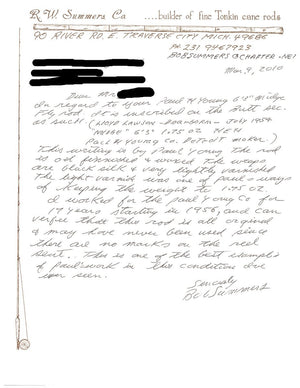 R.W. Summers Co. ....builder of fine Tonkin cane rods
90 RIVER RD. E. TRAVERSE CITY MICH. 49686
PH. 231 9467923
BOBSUMMERS@CHARTER.NET
Mar. 9, 2010
Dear Mr
In regard to your Paul H Young 6'3" Midge
Fly rod. It is inscribed on the Butt sec.
as such. (LLOYD LAWSON - DEARBORN - JULY 1954
"MIDGE" 6'3" 1.75 OZ HEH
PAUL H YOUNG CO. DETROIT MAKER)
This writing is by Paul Young the rod
is oil finished & waxed the wraps
are black silk & very lightly varnished
The light varnish was one of Paul's ways
of keeping the weight to 1.75 oz
I worked for the Paul Young Co for
years starting in 1956, and can
verify that this rod is all original
& may have never been used since
there are no marks on the reel
seat. This is one of the best examples
of Paul's work in this condition I've
ever seen.
Sincerely
Bob Summers